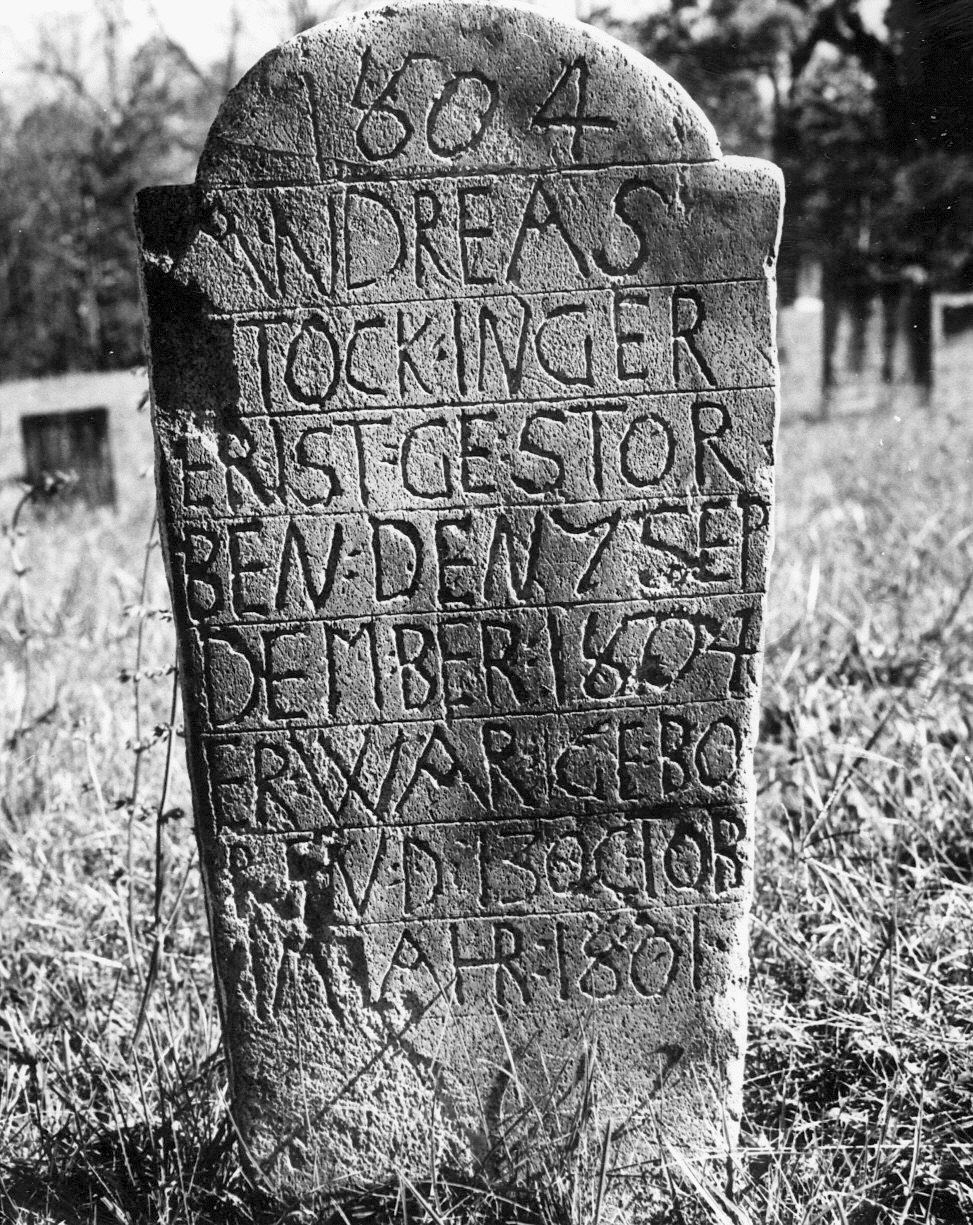 1804
ANDREAS
TOCK·INGER
ER IST·GESTOR
BEN·DEN 7 SEP
DEM·BER·1804
ER WAR·GEBO
D·13 OCTOB
IM IAHR·1801